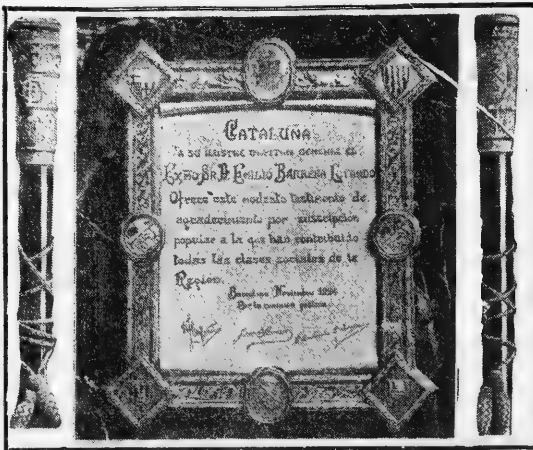 CATALUÑA
A SU ILUSTRE CAPITAN GENERAL EL
EXMO SR D EMILIO BARRERA LUYANDO
Ofrece este modesto testimonio de
agradecimiento por suscripción
popular a la que han contribuido
todas las clases sociales de la
Región.
Barcelona Noviembre 1924